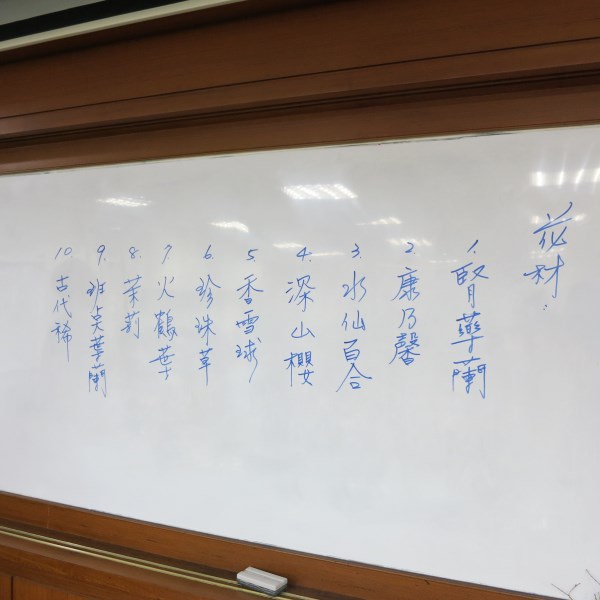 花材:
1. 腎藥蘭
2. 康乃馨
3. 水仙百合
4. 深山櫻
5. 香雪球
6. 珍珠草
7. 火鶴葉
8. 茉莉
9. 斑点葉蘭
10 古代稀